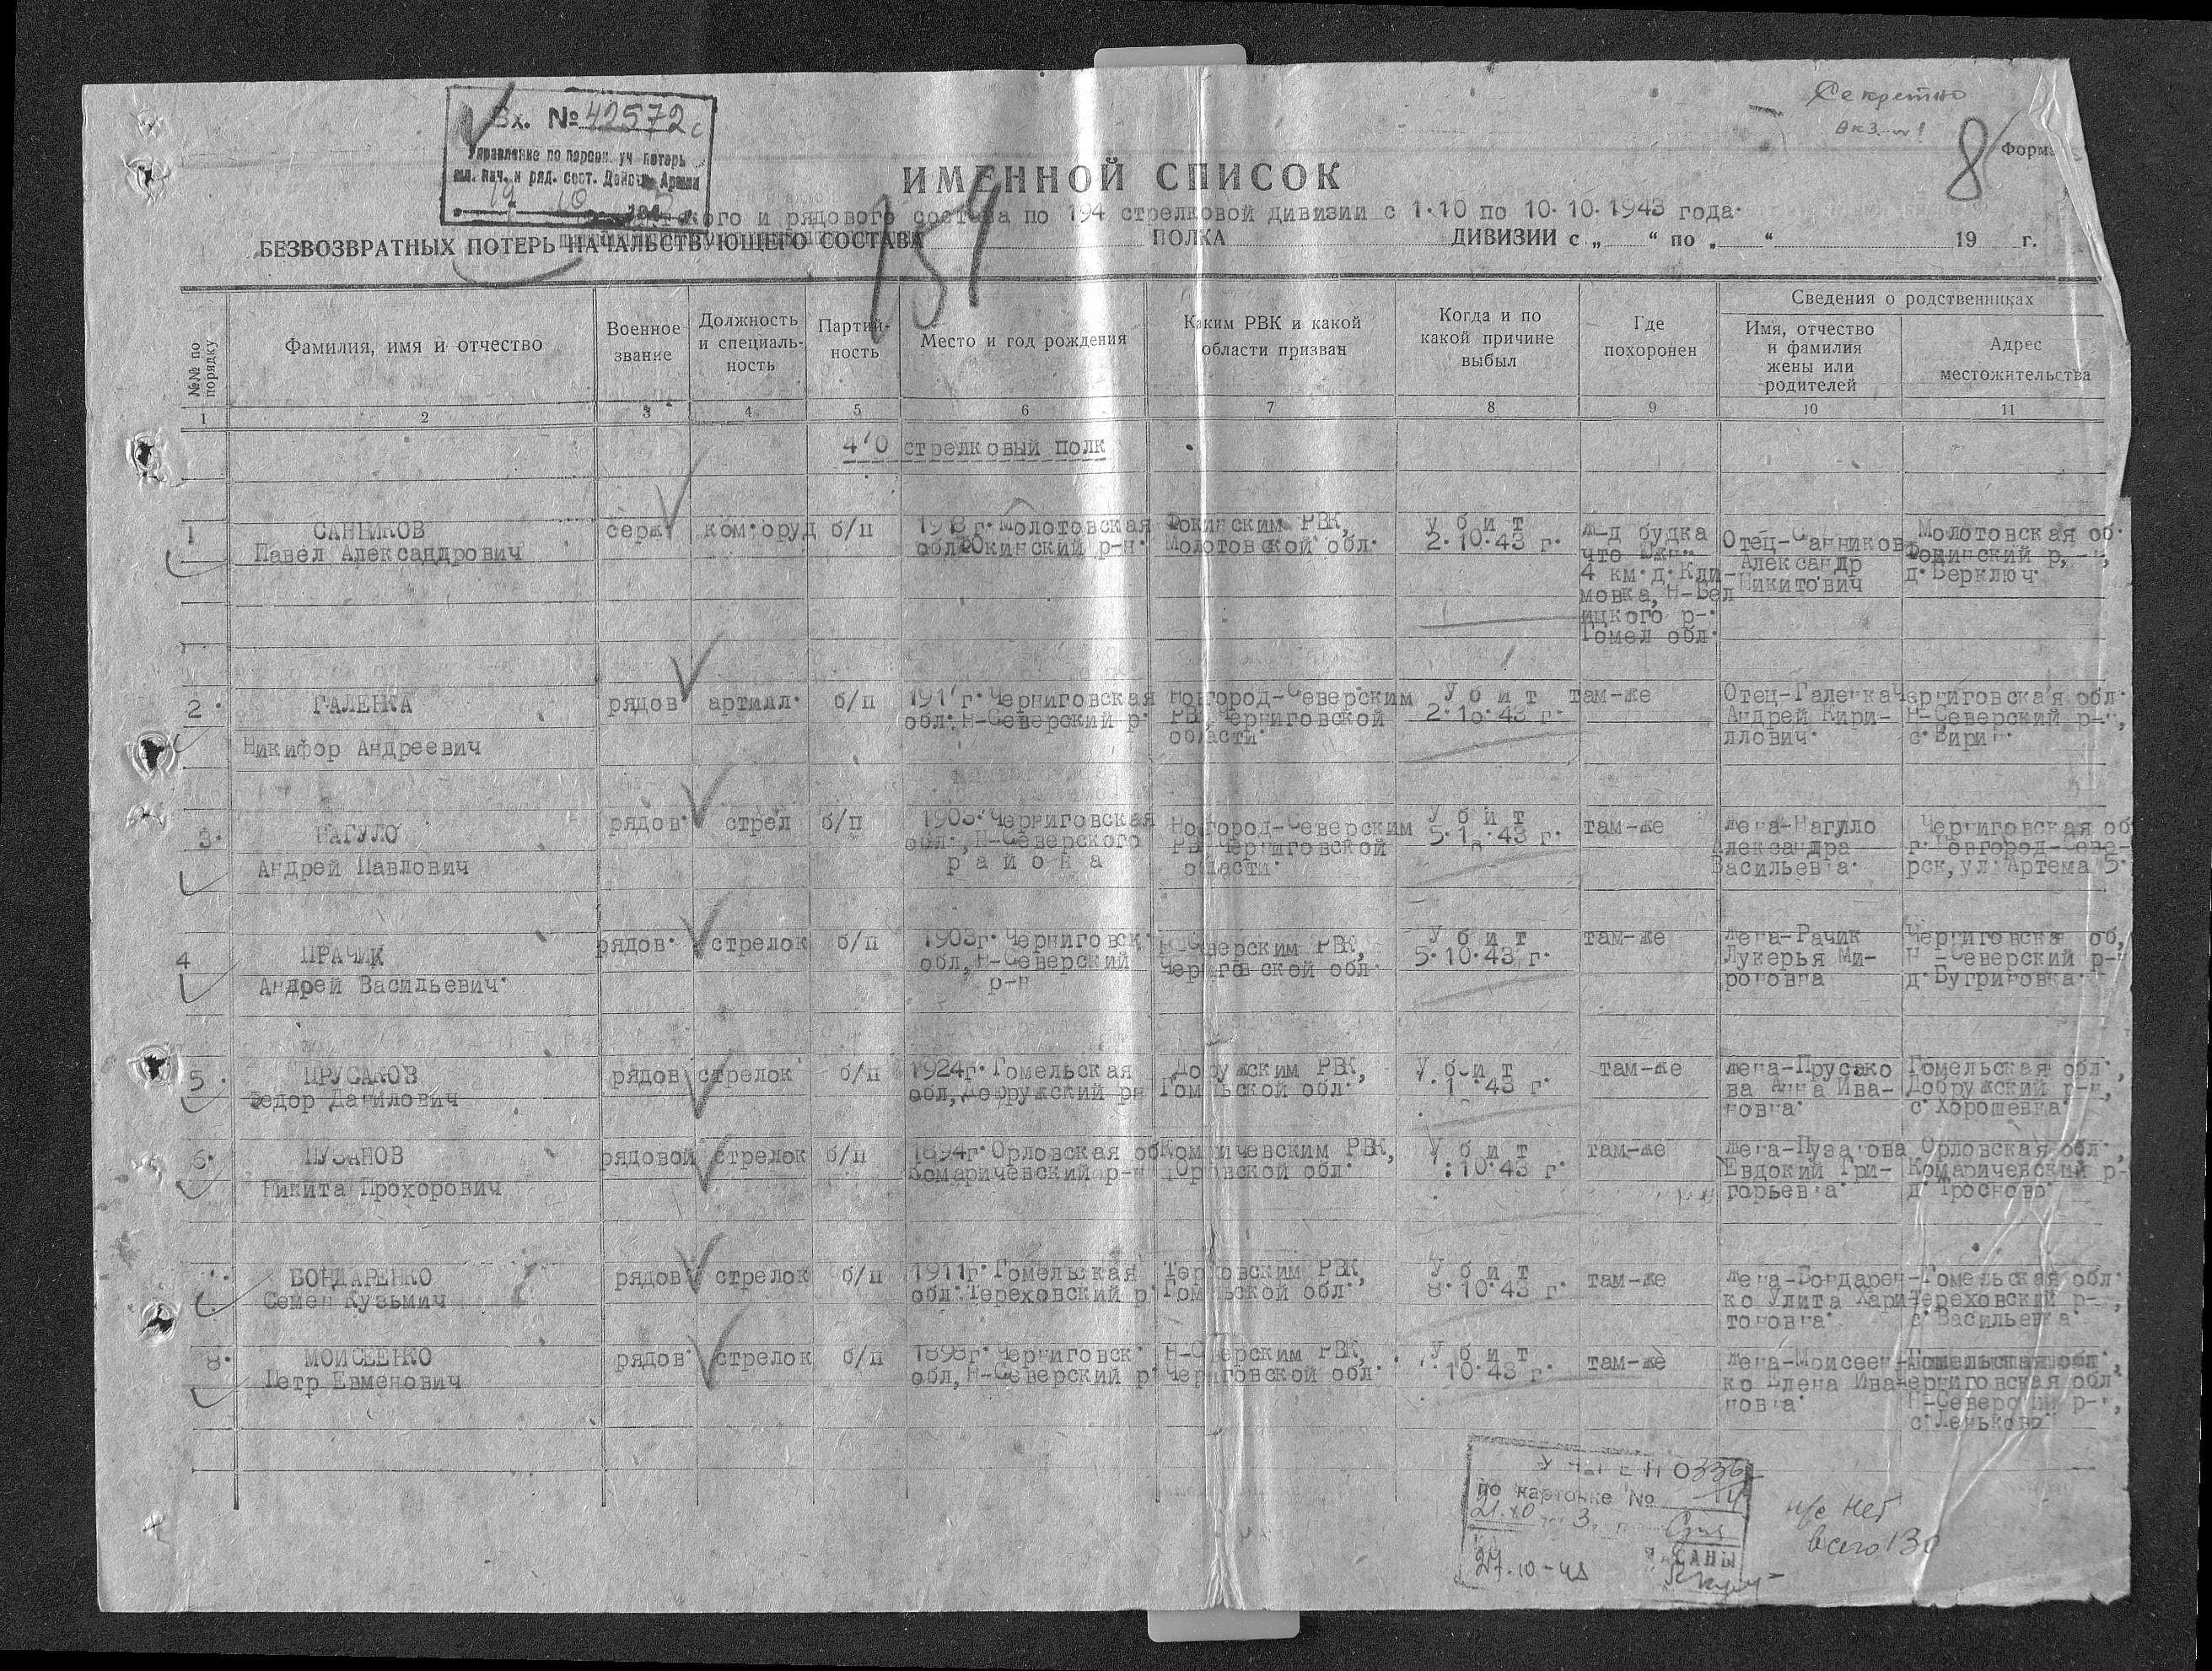 Секретно
экз. №1
Вх. № 42572с
Управление по персон. уч потерь
мл. нач. и ряд. сост. Действ. Армии
19 10
8
Форма
ИМЕННОЙ СПИСОК
159
и рядового состава по 194 стрелковой дивизии с 1.10 по 10.10.1943 года.
БЕЗВОЗВРАТНЫХ ПОТЕРЬ НАЧАЛЬСТВУЮЩЕГО СОСТАВА ПОЛКА ДИВИЗИИ с „ “ по „ “ 19 г.
№№ по порядку
Фамилия, имя и отчество
Военное звание
Должность и специаль-ность
Партий-ность
Место и год рождения
Каким РВК и какой области призван
Когда и по какой причине выбыл
Где похоронен
Сведения о родственниках
Имя, отчество и фамилия жены или родителей
Адрес местожительства
1 2 3 4 5 6 7 8 9 10 11
470 стрелковый полк
1 САННИКОВ серж. ком.оруд б/п 1913г. Молотовская Фокинским РВК, Убит ж-д будка Отец-Санников Молотовская об.
Павел Александрович обл Фокинский р-н. Молотовской обл. 2.10.43 г. что южн. Александр Фокинский р-н,
4 км.д.Кли- Никитович д.Верключ.
мовка, Н-Бел
ицкого р-.
Гомел обл.
2. ГАЛЕНКА рядов артилл. б/п г. Черниговская Новгород-Северским Убит там-же Отец-Галенка Черниговская обл.
обл. Н-Северский р. РВК, Черниговской 2.10.43 г. Андрей Кири- Н-Северский р-н,
Никифор Андреевич области. ллович. с.Бирин.
3. НАГУЛО рядов. стрел б/п Черниговская Новгород-Северским Убит там-же жена-Нагуло Черниговская об
обл., Н-Северского РВК Черниговской 5.10.43 г. Александра г.Новгород-Севе-
Андрей Павлович района области. Васильевна. рск, ул Артема 5.
4 ПРАЧИК рядов. стрелок б/п 1903г. Черниговск. Н-Северским РВК, Убит там-же жена-Рачик Черниговская об,
обл, Н-Северский Черниговской обл. 5.10.43 г. Лукерья Ми- Н-Северский р-н
Андрей Васильевич. р-н роновна д.Бугриновка.
5. ПРУСАКОВ рядов стрелок б/п 1924г. Гомельская Добружским РВК, Убит там-же жена-Прусако Гомельская обл.,
Федор Данилович обл, Добружский рн Гомельской обл. 43 г. ва Анна Ива- Добружский р-н,
новна. с.Хорошевка.
6. ПУЗАНОВ рядовой стрелок б/п 1894г. Орловская об Комаричевским РВК, Убит там-же жена-Пузанова Орловская обл.,
Никита Прохорович Комаричевский р-н Орловской обл. 10.43 г. Евдокий Гри- Комаричевский р-
горьевна. д.Тросново.
БОНДАРЕНКО рядов стрелок б/п 1911г. Гомельская Терховским РВК, Убит там-же жена-Бондарен- Гомельская обл.
Семен Кузьмич обл. Тереховский р. Гомельской обл. 8.10.43 г. ко Улита Хари- Тереховский р-н,
тоновна. с.Васильевка.
8. МОИСЕЕНКО рядов. стрелок б/п г. Черниговск. Н-Северским РВК, Убит там-же жена-Моисеен-
Петр Евменович обл, Н-Северский р. Черниговской обл. 10.43 г. ко Елена Ива- Черниговская обл.
новна. Н-Северский р-н,
с.Леньково
УЧТЕНО
по карточке №
21.10
27.10-43
н/с нет
всего 130